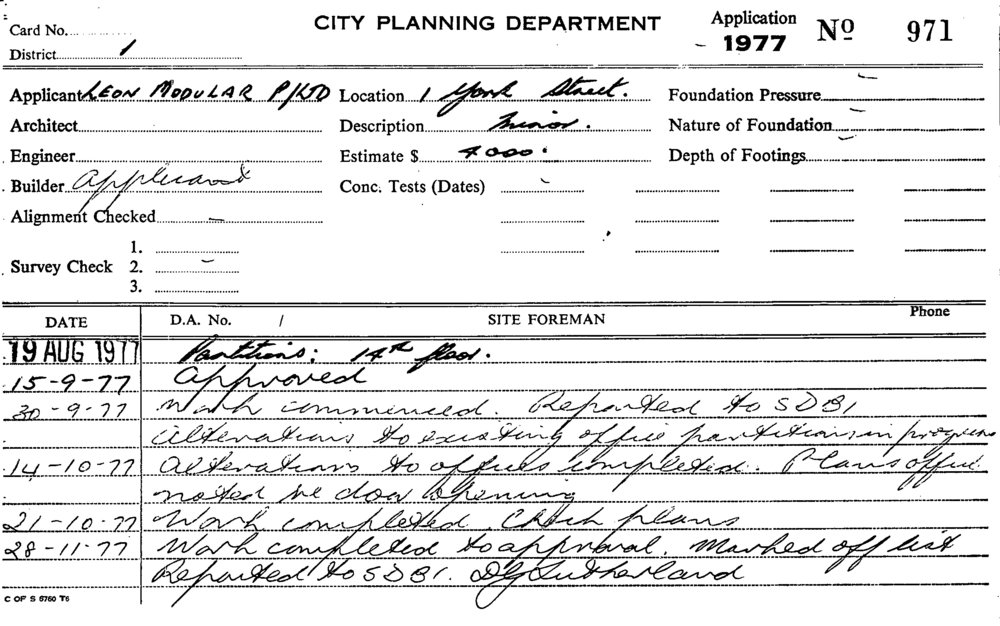 CITY PLANNING DEPARTMENT
Application 1977 No 971
Card No.
District 1
Applicant LEON MODULAR P/LTD Location 1 York Street. Foundation Pressure
Architect Description Minor. Nature of Foundation
Engineer Estimate $ 4000. Depth of Footings
Builder Applicant Conc. Tests (Dates)
Alignment Checked
1.
Survey Check 2.
3.
DATE D.A. No. / SITE FOREMAN Phone
19 AUG 1977 Partitions: 14th floor.
15-9-77 Approved
30-9-77 Work commenced. Reported to SDBI
Alterations to existing office partitions in progress
14-10-77 Alterations to offices completed. Plans office
noted re door opening
21-10-77 Work completed. Check plans
28-11-77 Work completed to approval. Marked off list
Reported to SDBI. DG Sutherland
C OF S 6760 T6